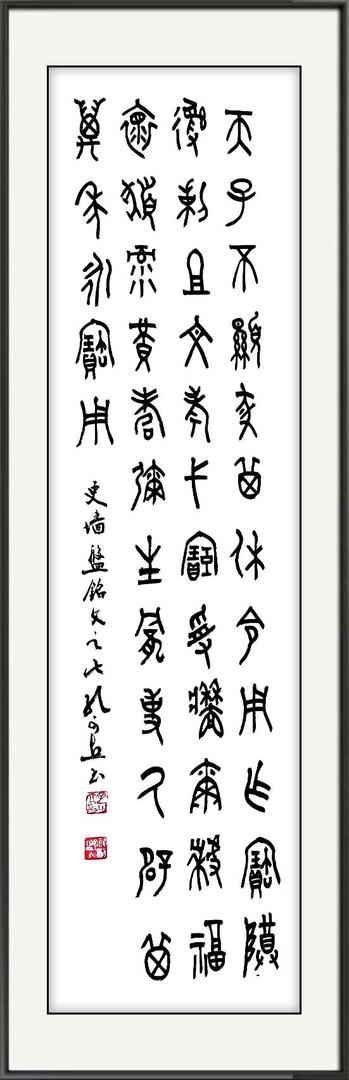 天子不顯休令用乍寶尊
彝剌且文考弋受牆爾福
褱黃耇彌生龕事氒辟其
萬年永寶用
史墙盤銘文之七